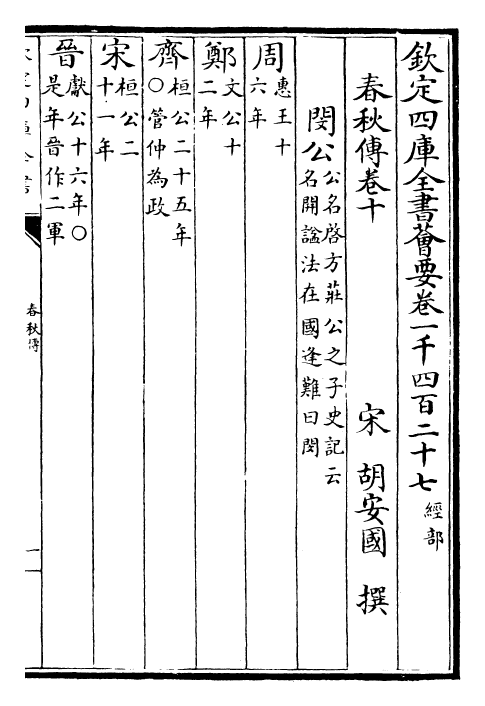 欽定四庫全書薈要卷一千四百二十七 經部
春秋傳卷十
宋 胡安國 撰
閔公 公名啓方莊公之子史記云名開諡法在國逢難曰閔
周 惠王十六年
鄭 文公十二年
齊 桓公二十五年○管仲為政
宋 桓公二十一年
晉 獻公十六年○是年晉作二軍
春秋傳
一